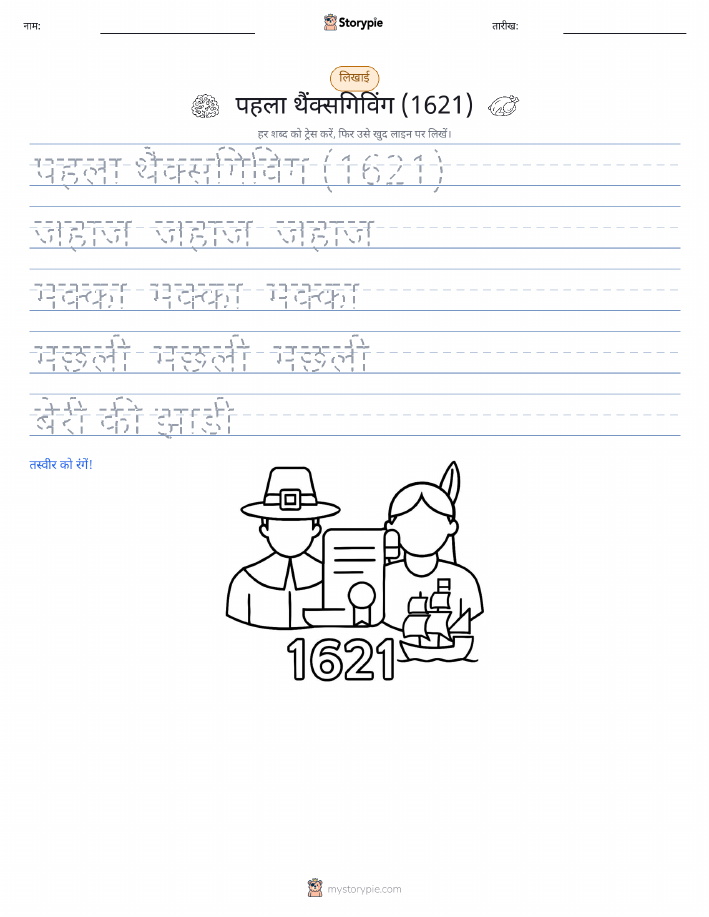 नाम:
Storypie
तारीख:
लिखाई
पहला थैंक्सगिविंग (1621)
हर शब्द को ट्रेस करें, फिर उसे खुद लाइन पर लिखें।
पहला थैंक्सगिविंग (1621)
जहाज जहाज जहाज
मक्का मक्का मक्का
मछली मछली मछली
बेरी की झाड़ी
तस्वीर को रंगें!
1621
mystorypie.com